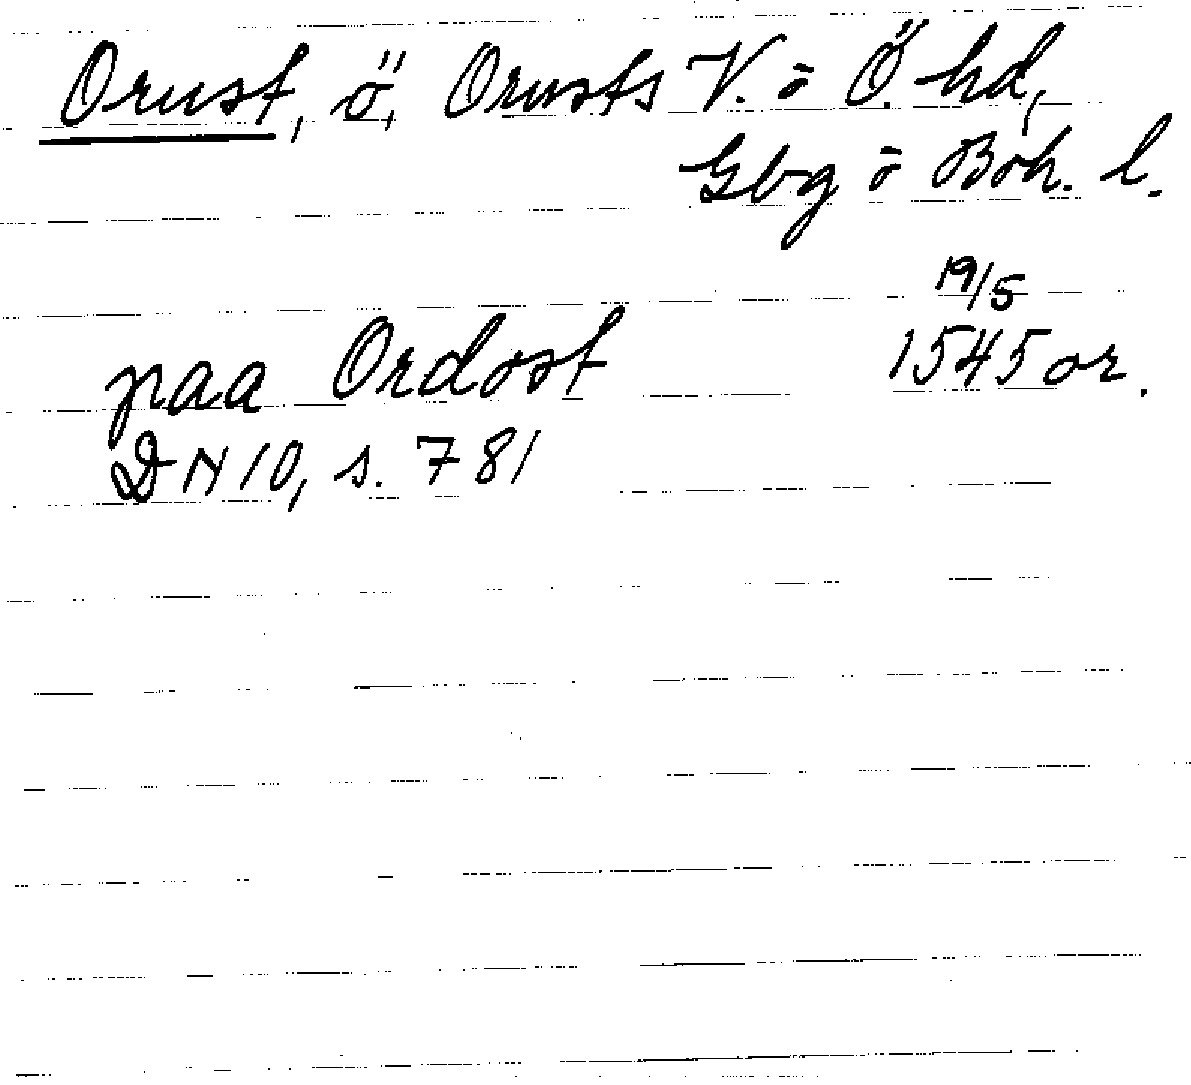 Orust, ö, Orusts V. o Ö. hd,
Gbg o Boh. l.
19/5
paa Ordost 1545 or.
DN 10, s. 781